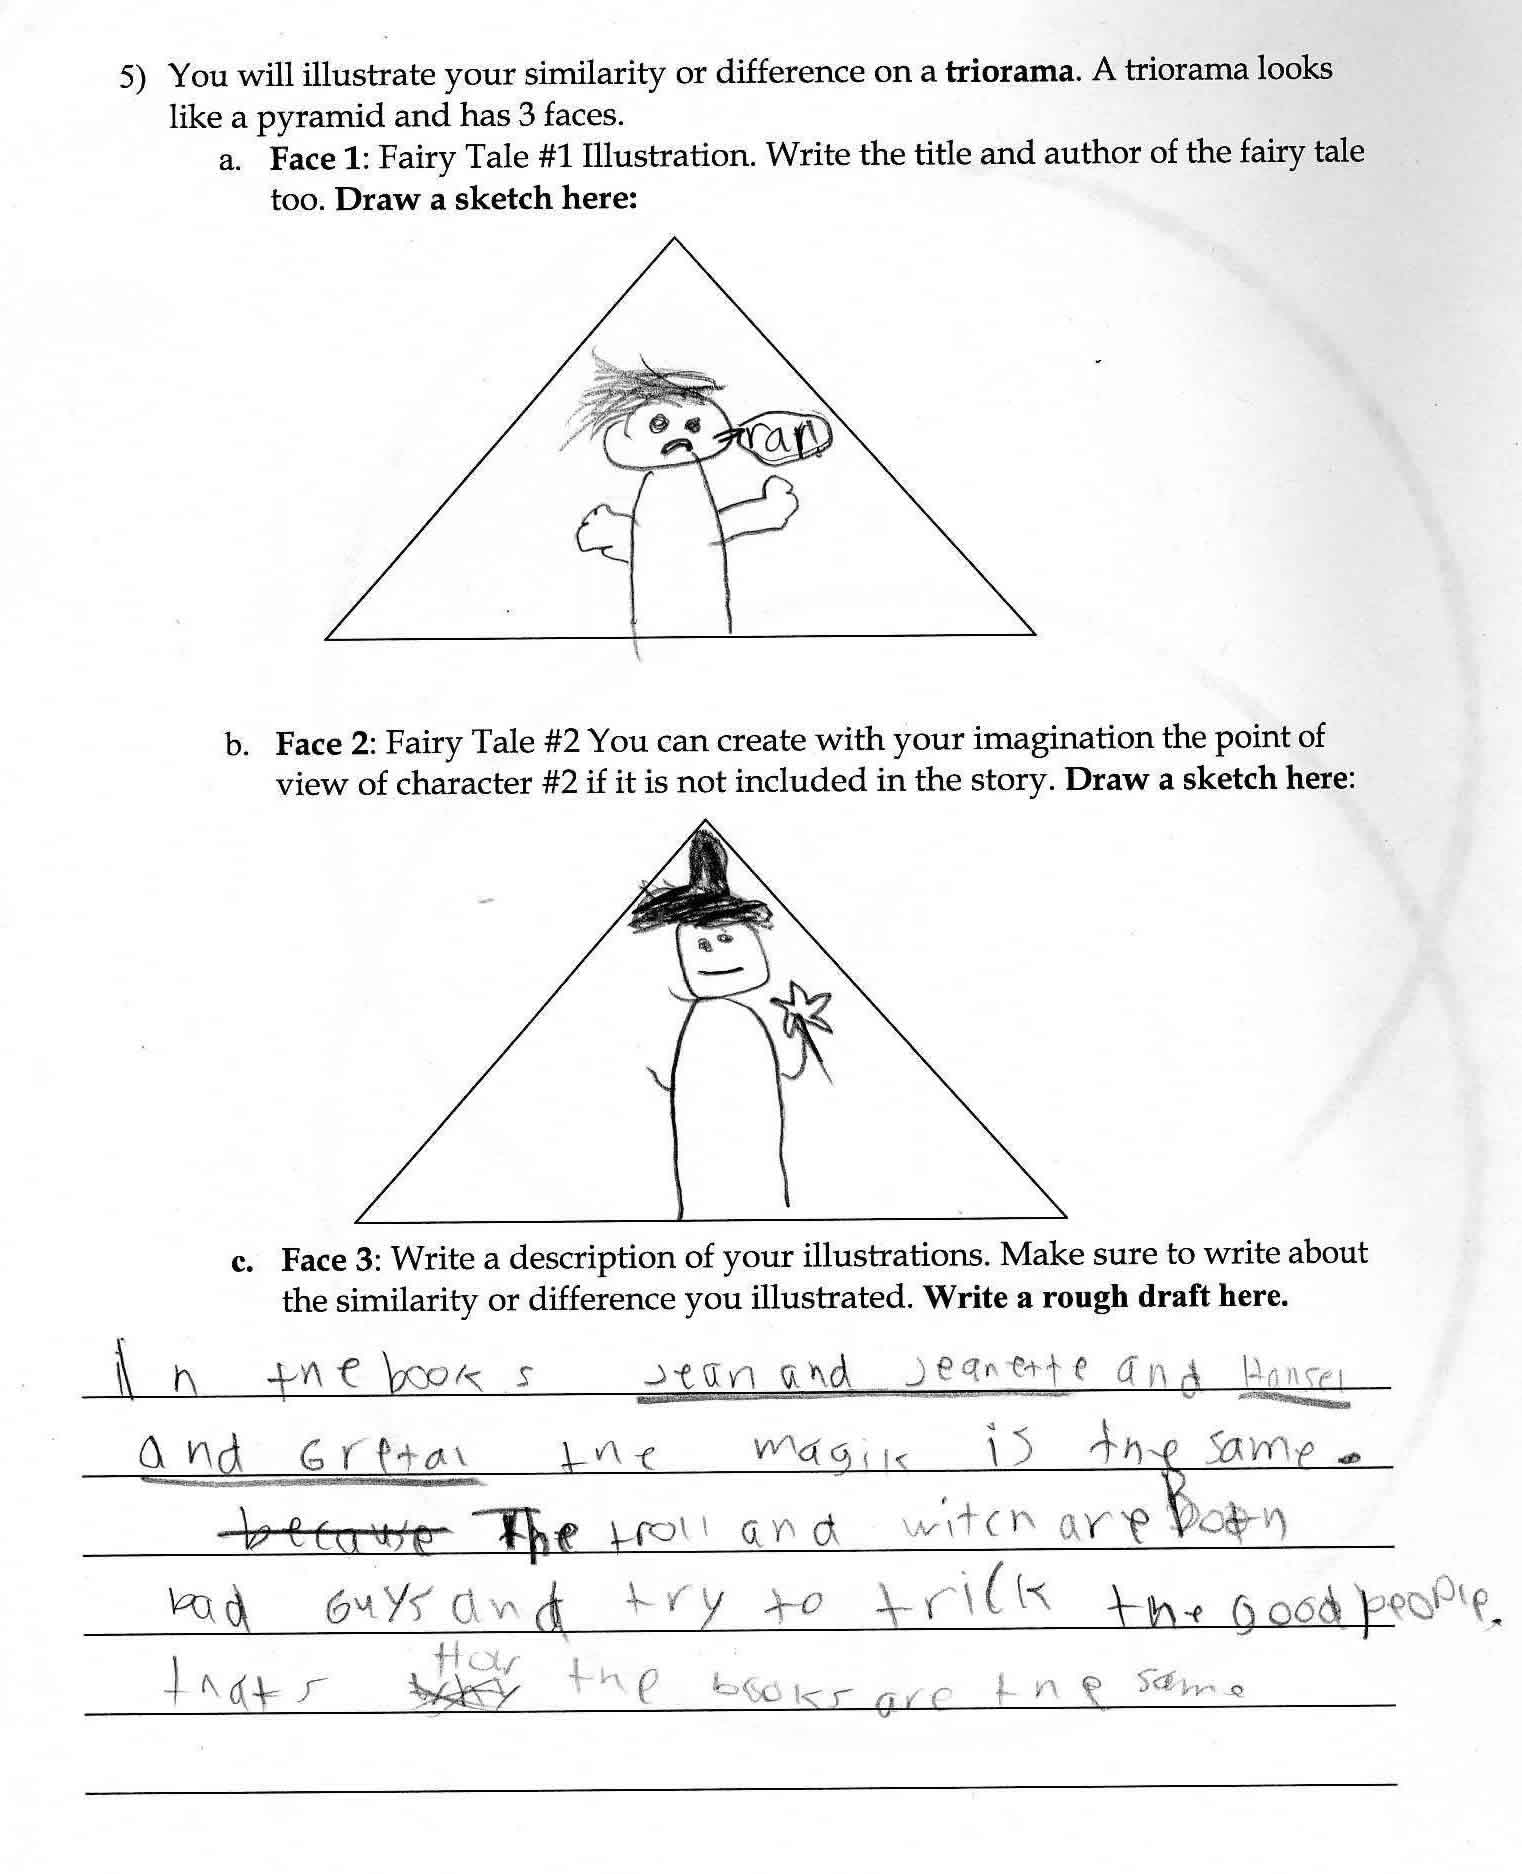 5) You will illustrate your similarity or difference on a triorama. A triorama looks
like a pyramid and has 3 faces.
a. Face 1: Fairy Tale #1 Illustration. Write the title and author of the fairy tale
too. Draw a sketch here:
rar
b. Face 2: Fairy Tale #2 You can create with your imagination the point of
view of character #2 if it is not included in the story. Draw a sketch here:
c. Face 3: Write a description of your illustrations. Make sure to write about
the similarity or difference you illustrated. Write a rough draft here.
In the books Jean and Jeanette and Hansel
and Gretal the magik is the same.
because The troll and witch are Both
bad guys and try to trick the good people.
How
thats why the books are the same